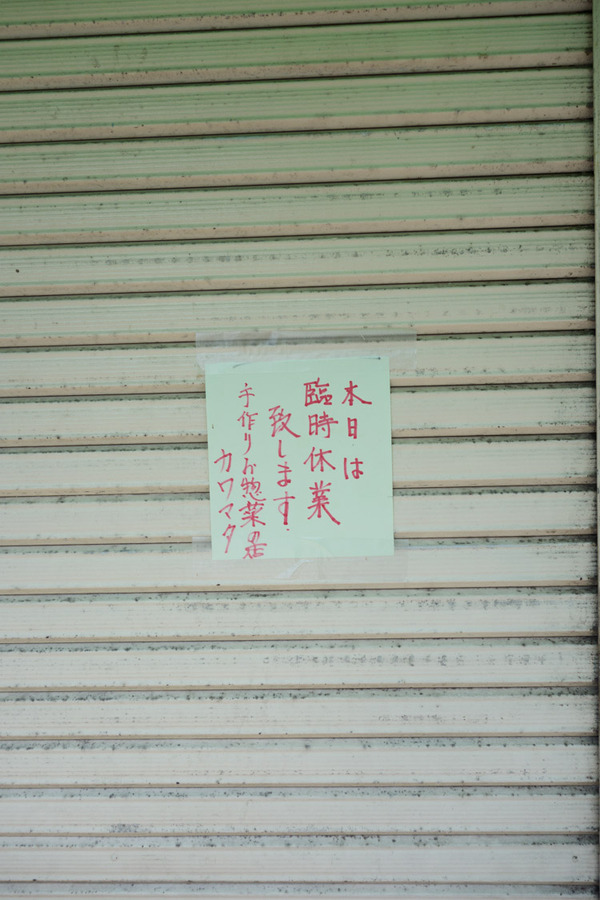 本日は
臨時休業
致します.
手作りお惣菜の店
カワマタ